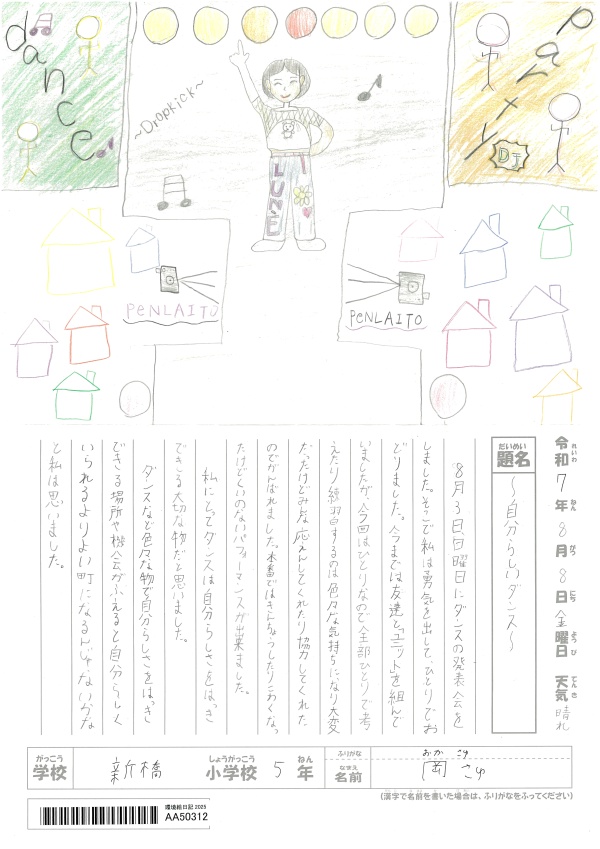 dance
party
DJ
~Dropkick~
LUNÉ
PeNLAITO
PeNLAITO
令和7年8月8日金曜日 天気 晴れ
れいわ ねん がつ にち ようび てんき
だいめい
題名
〜自分らしいダンス〜
8月3日日曜日にダンスの発表会を
しました。そこで私は勇気を出して、ひとりでお
どりました。今までは友達と「ユニット」を組んで
いましたが、今回はひとりなので全部ひとりで考
えたり練習するのは色々な気持ちになり大変
だったけどみんな応えんしてくれたり協力してくれた
のでがんばれました。本番ではきんちょうしたりこわくなっ
たけどくいのないパフォーマンスが出来ました。
私にとってダンスは自分らしさをはっき
できる大切な物だと思いました。
ダンスなど色々な物で自分らしさをはっき
できる場所や機会がふえると自分らしく
いられるよりよい町になるんじゃないかな
と私は思いました。
がっこう しょうがっこう ねん ふりがな おか こゆ
学校 新橋 小学校 5年 なまえ 名前 岡 こゆ
(漢字で名前を書いた場合は、ふりがなをふってください)
環境絵日記 2025
AA50312